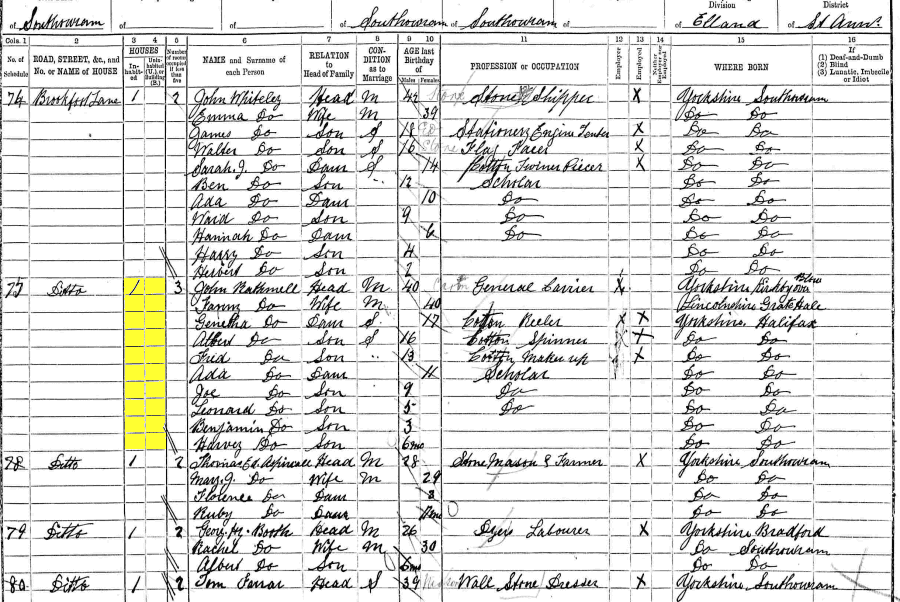 Division District
of Southowram of of of Southowram of Southowram of of Elland of St Ann's
Cols. 1 2 3 4 5 6 7 8 9 10 11 12 13 14 15 16
No. of Schedule ROAD, STREET, &c., and No. or NAME of HOUSE HOUSES Inhabited Uninhabited (U.) or Building (B.) Number of rooms occupied if less than five NAME and Surname of each Person RELATION to Head of Family CONDITION as to Marriage AGE last Birthday of Males Females PROFESSION or OCCUPATION Employer Employed Neither Employer nor Employed WHERE BORN If (1) Deaf-and-Dumb (2) Blind (3) Lunatic, Imbecile or Idiot
74 Brookfoot Lane 1 2 John Whiteley Head M 42 Stone Shipper X Yorkshire Southowram
Emma Do Wife M 39 Do Do
James Do Son S 18 Stationery Engine Tenter X Do Do
Walter Do Son S 16 Flag Facer X Do Do
Sarah J. Do Daur S 14 Cotton Twiner Piecer X Do Do
Ben Do Son 12 Scholar Do Do
Ada Do Daur 10 Do Do Do
Ward Do Son 9 Do Do Do
Hannah Do Daur 6 Do Do Do
Harry Do Son 4 Do Do
Herbert Do Son 2 Do Do
75 Ditto 1 3 John Rathmell Head M 40 General Carrier X Yorkshire
Fanny Do Wife M 40 Lincolnshire Grate Hale
Genetha Do Daur S 17 Cotton Reeler X X Yorkshire Halifax
Albert Do Son S 16 Cotton Spinner X Do Do
Fred Do Son 13 Cotton Maker up X Do Do
Ada Do Daur 11 Scholar Do Do
Joe Do Son 9 Do Do Do
Leonard Do Son 5 Do Do Do
Benjamin Do Son 3 Do Do
Harvey Do Son 6mo Do Do
78 Ditto 1 2 Thomas Ed. Aspinall Head M 28 Stone Mason & Farmer X Yorkshire Southowram
Mary J. Do Wife M 29 Do Do
Florence Do Daur Do Do
Ruby Do Daur Do Do
79 Ditto 1 2 Geo. H. Booth Head M 26 Dyers Labourer X Yorkshire Bradford
Rachel Do Wife M 30 Do Southowram
Albert Do Son 6mo Do Do
80 Ditto 1 2 Tom Farrar Head S 39 Wall Stone Dresser X Yorkshire Southowram